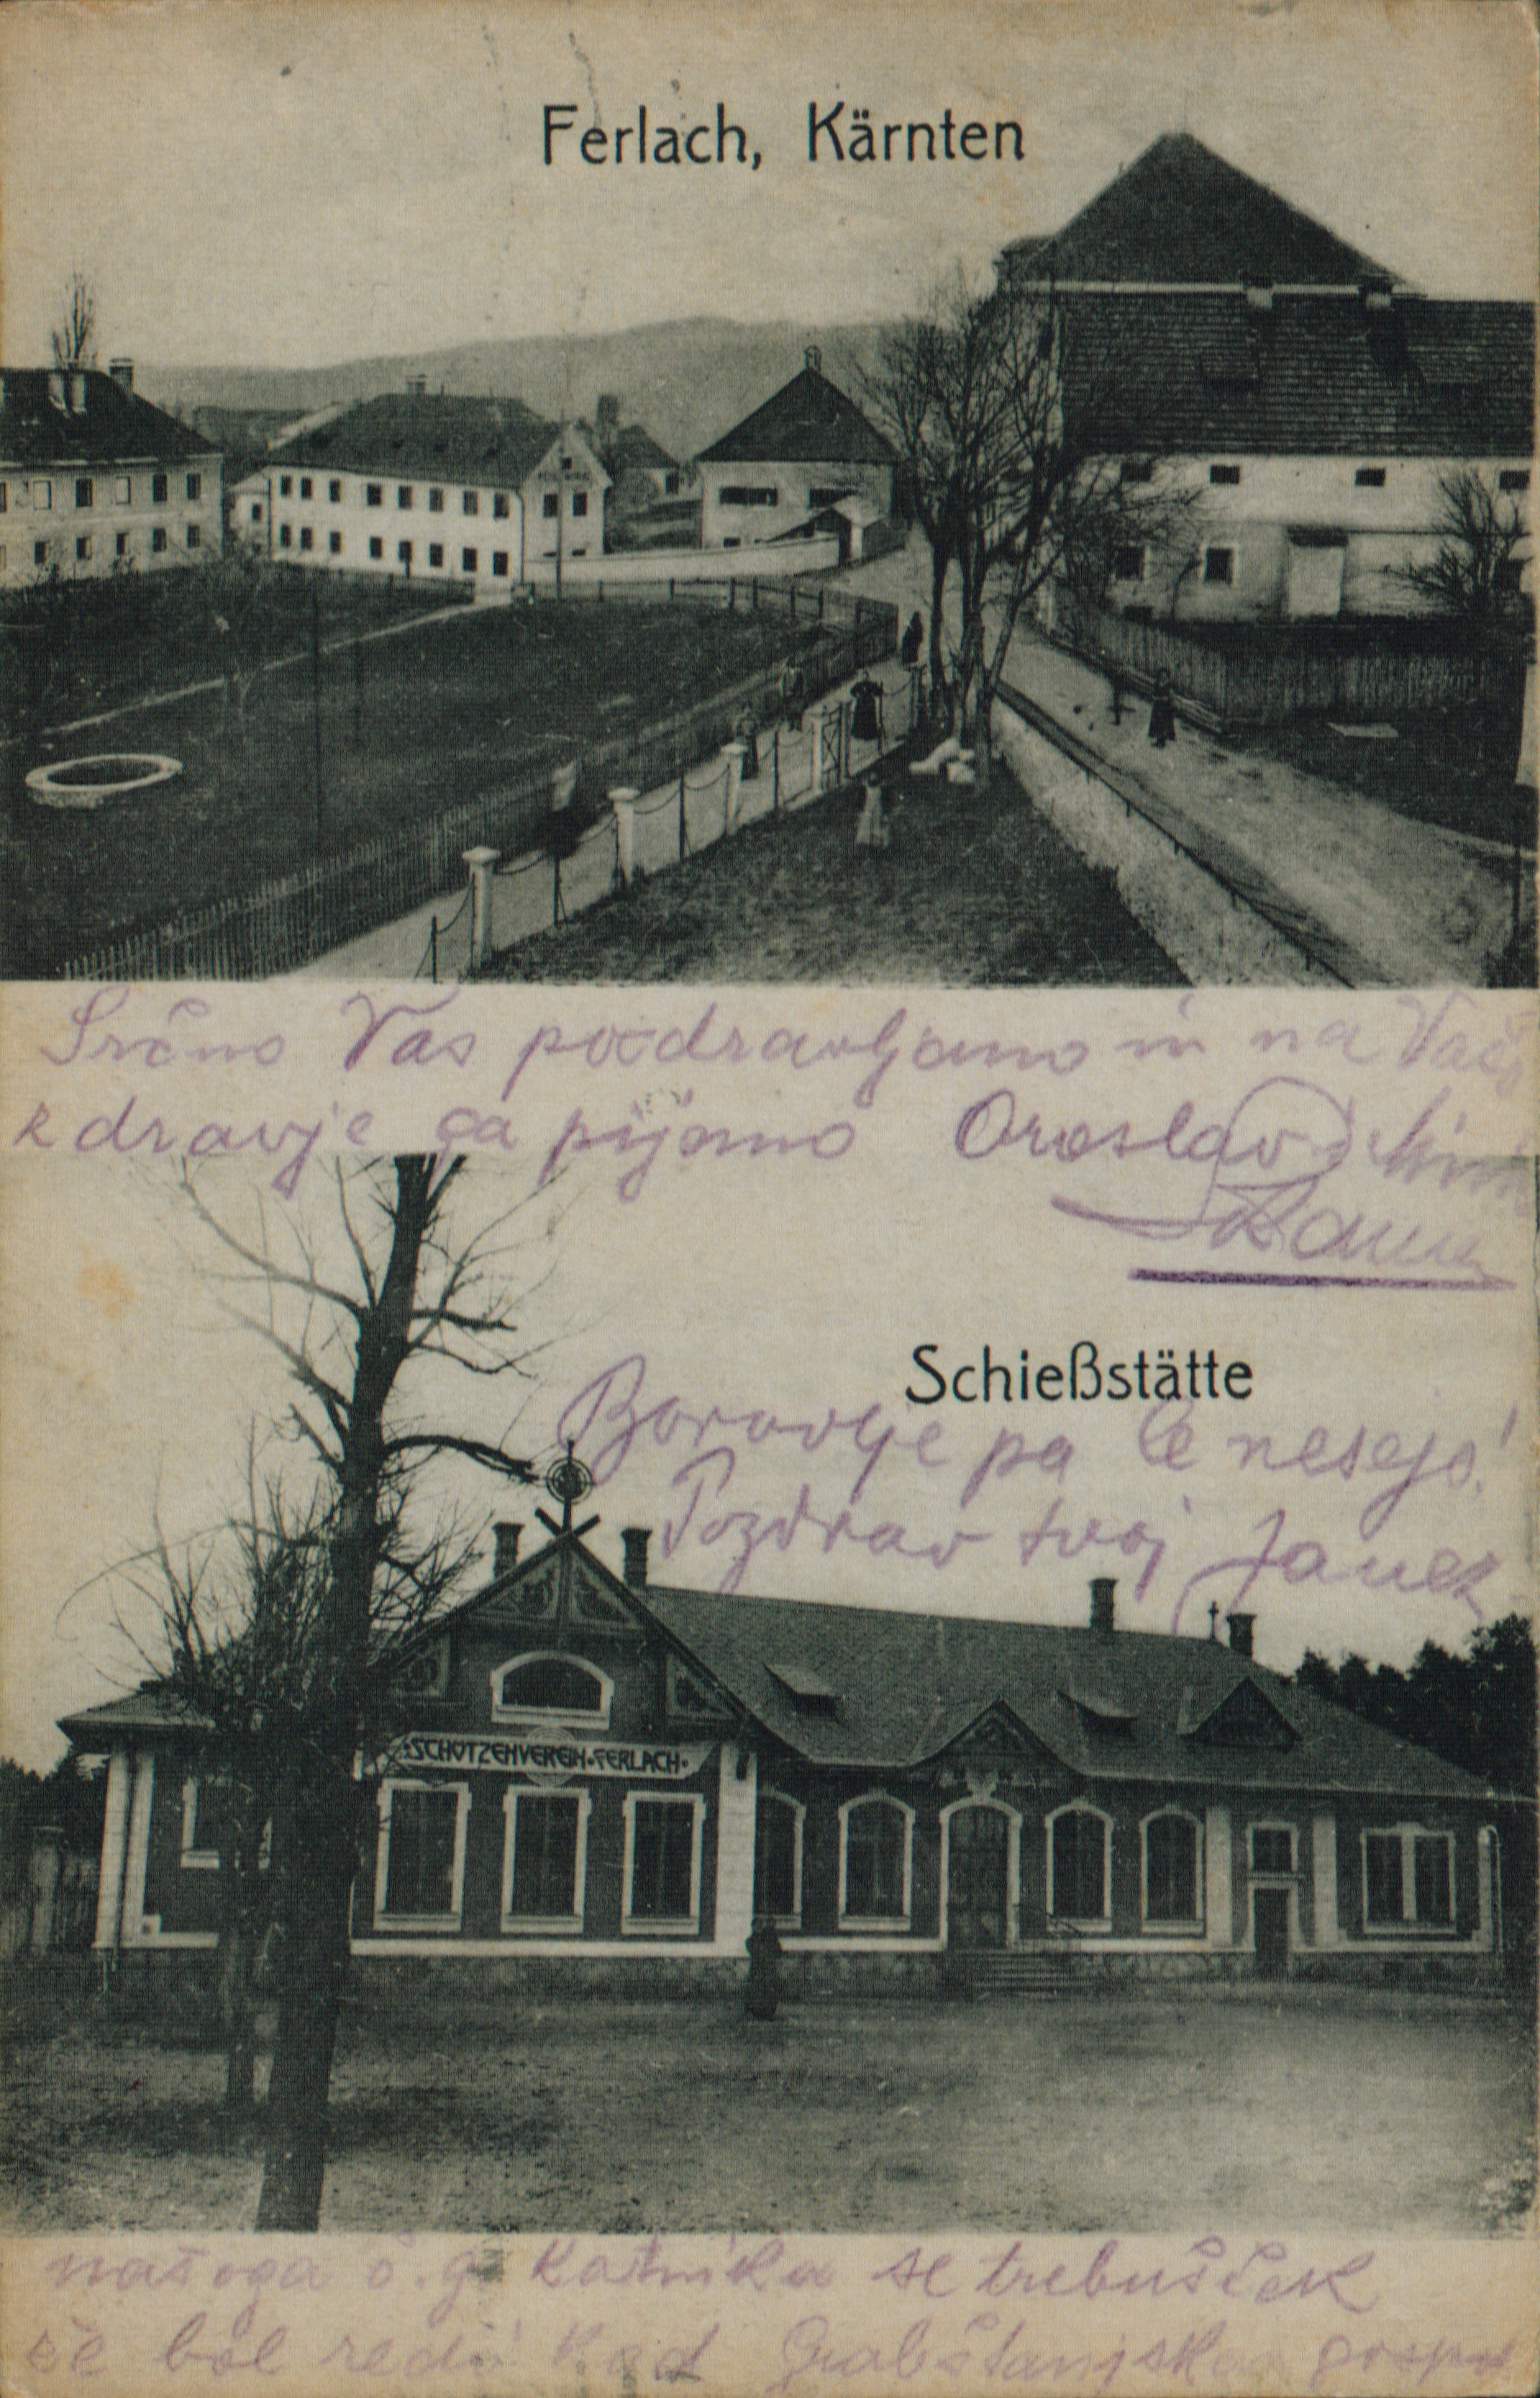 Ferlach, Kärnten
Srčno Vas pozdravljamo in na Vaše
zdravje ga pijemo Oroslav
Schießstätte
Borovlje pa le nesejo!
Pozdrav tvoj Janez
SCHÜTZENVEREIN FERLACH
našega č. g. se trebušček
že bol redi kod